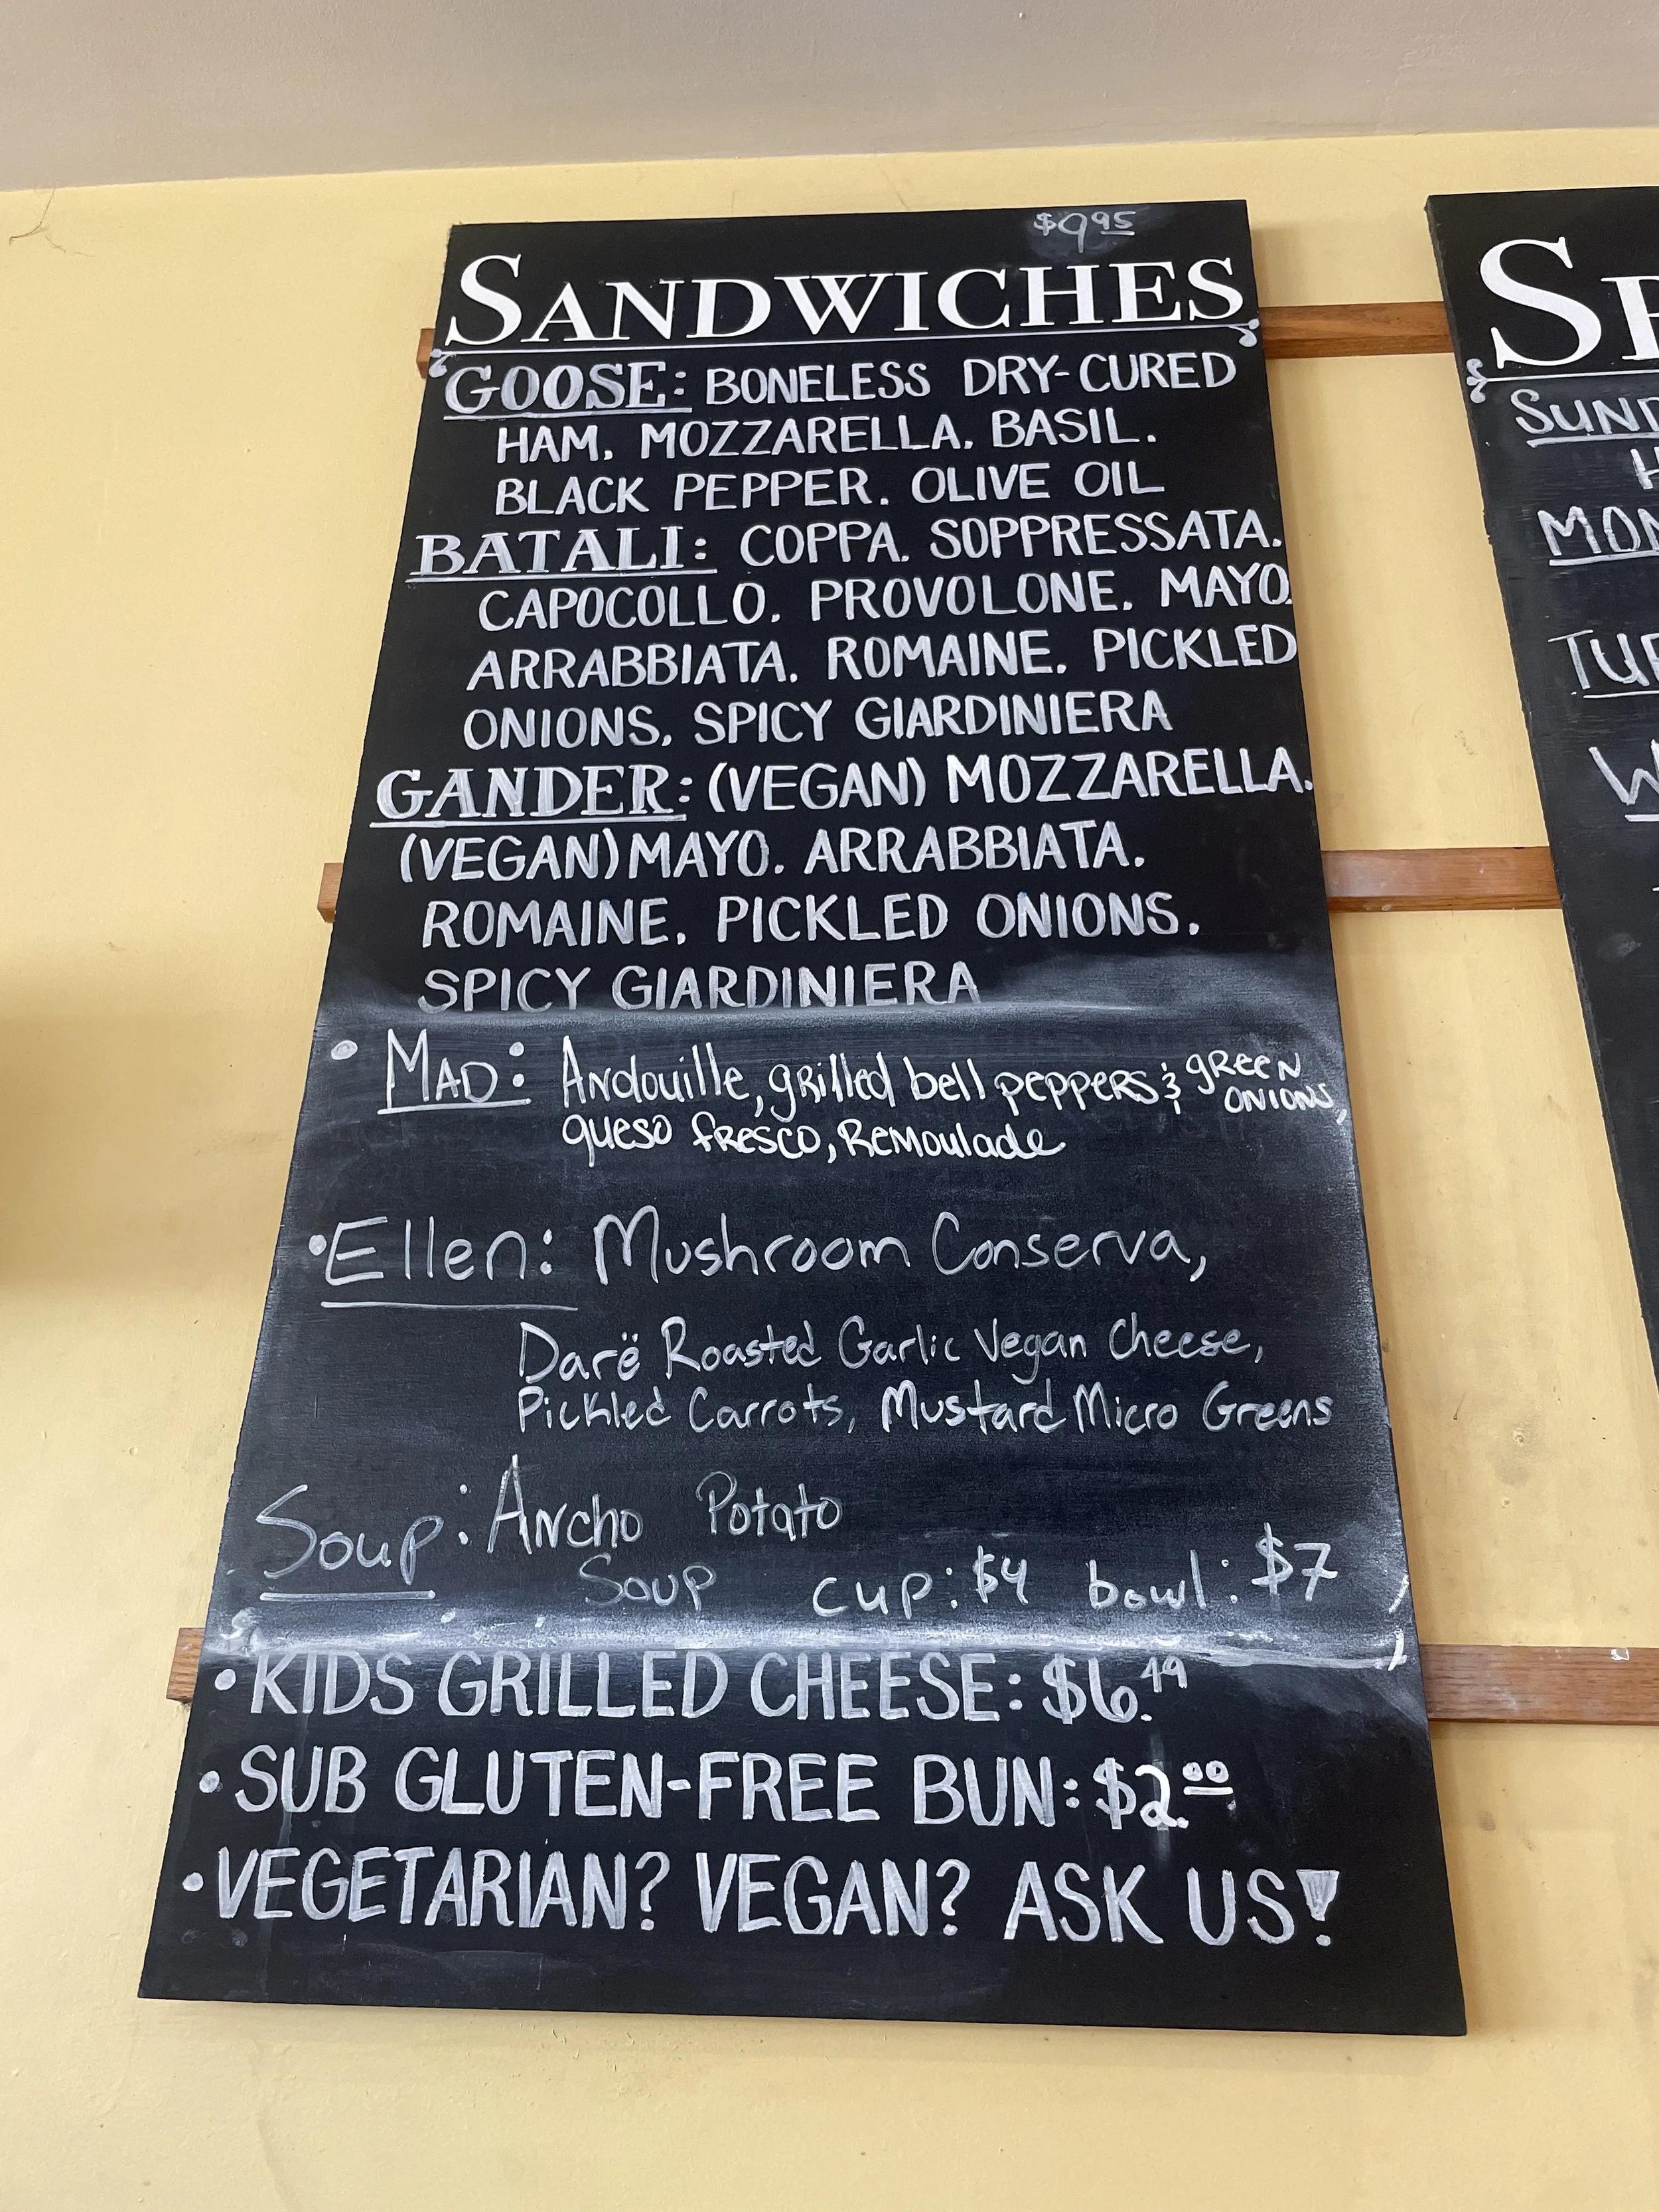 $9.95
SANDWICHES
GOOSE: BONELESS DRY-CURED
HAM, MOZZARELLA, BASIL,
BLACK PEPPER, OLIVE OIL
BATALI: COPPA, SOPPRESSATA,
CAPOCOLLO, PROVOLONE, MAYO,
ARRABBIATA, ROMAINE, PICKLED
ONIONS, SPICY GIARDINIERA
GANDER: (VEGAN) MOZZARELLA,
(VEGAN) MAYO, ARRABBIATA,
ROMAINE, PICKLED ONIONS,
SPICY GIARDINIERA
• MAD: Andouille, grilled bell peppers & green onions,
queso fresco, Remoulade
• Ellen: Mushroom Conserva,
Darë Roasted Garlic Vegan Cheese,
Pickled Carrots, Mustard Micro Greens
Soup: Ancho Potato
Soup cup: $4 bowl: $7
• KIDS GRILLED CHEESE: $6.49
• SUB GLUTEN-FREE BUN: $2.00
• VEGETARIAN? VEGAN? ASK US!
SP
SUND
H
MON
TUE
W